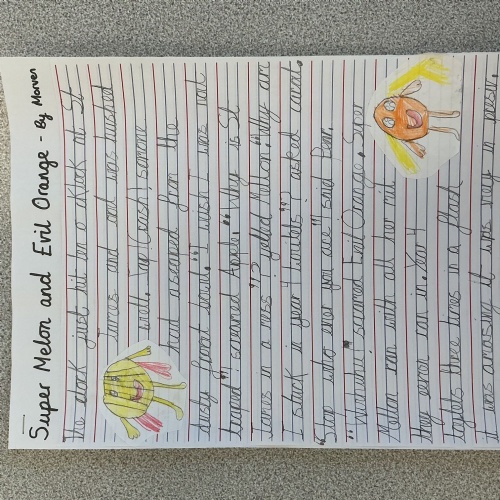 Super Melon and Evil Orange - By Morven
The clock just hit ten o clock at St
James and and was busted
well. Tap! Crash! someone
had escaped from the
dusty froot bowl. "I wish I was not
trapped"! screamed Apple. "Why is St
James in a mess"? yelled Melon. "Why am
I stuck in year 4 toilets"? asked carrot.
"Stop who ever you are" said Pear.
"What what" screamed Evil Orange. Super
Mellon ran with all her mit
they ever ran in. Year 4
toylets three times in a flash
it was amasing it was very in presiv.